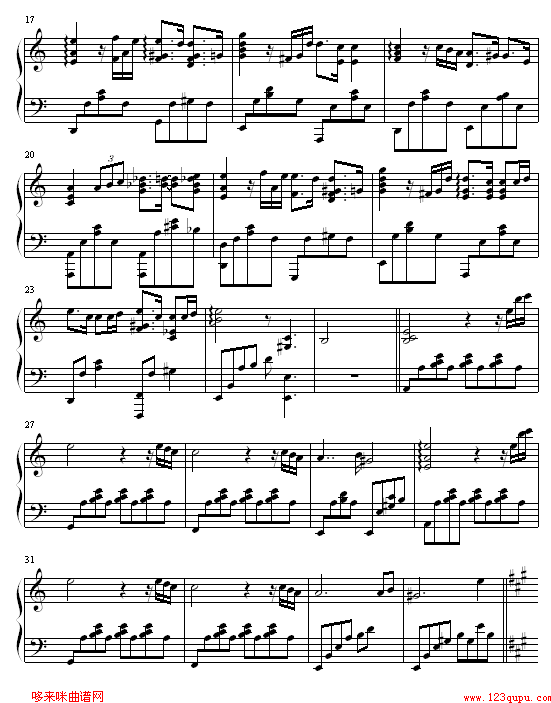 17
20
3
23
27
31
哆来咪曲谱网
www.123qupu.com